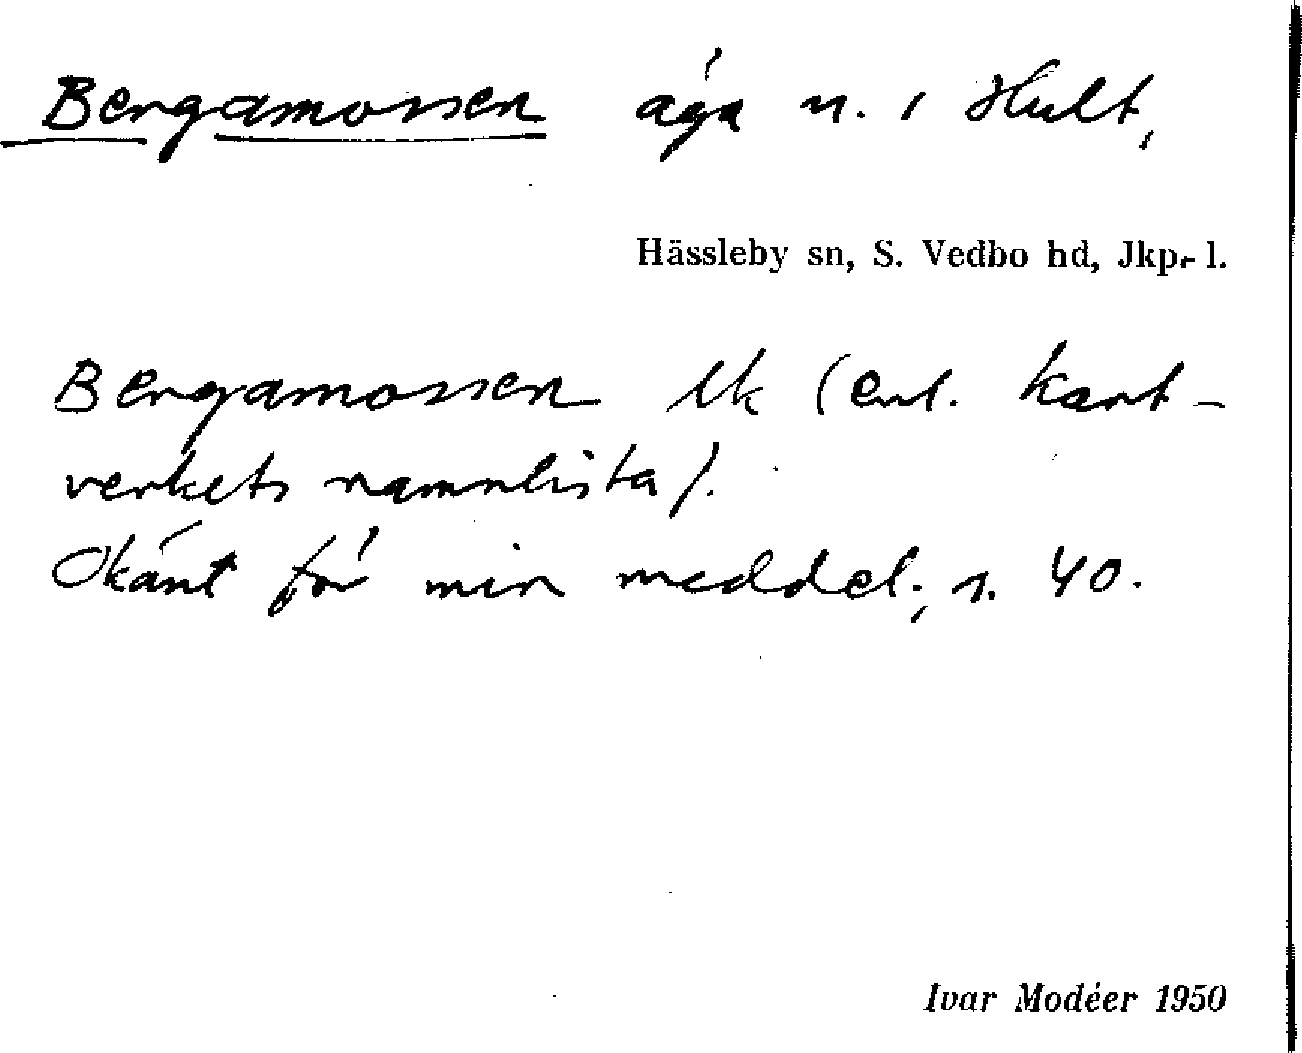 Bergamossen äga n. i Hult,
Hässleby sn, S. Vedbo hd, Jkp.- l.
Bergamossen lk (enl. kart-
verkets namnlista).
Okänt för min meddel., s. 40.
Ivar Modéer 1950